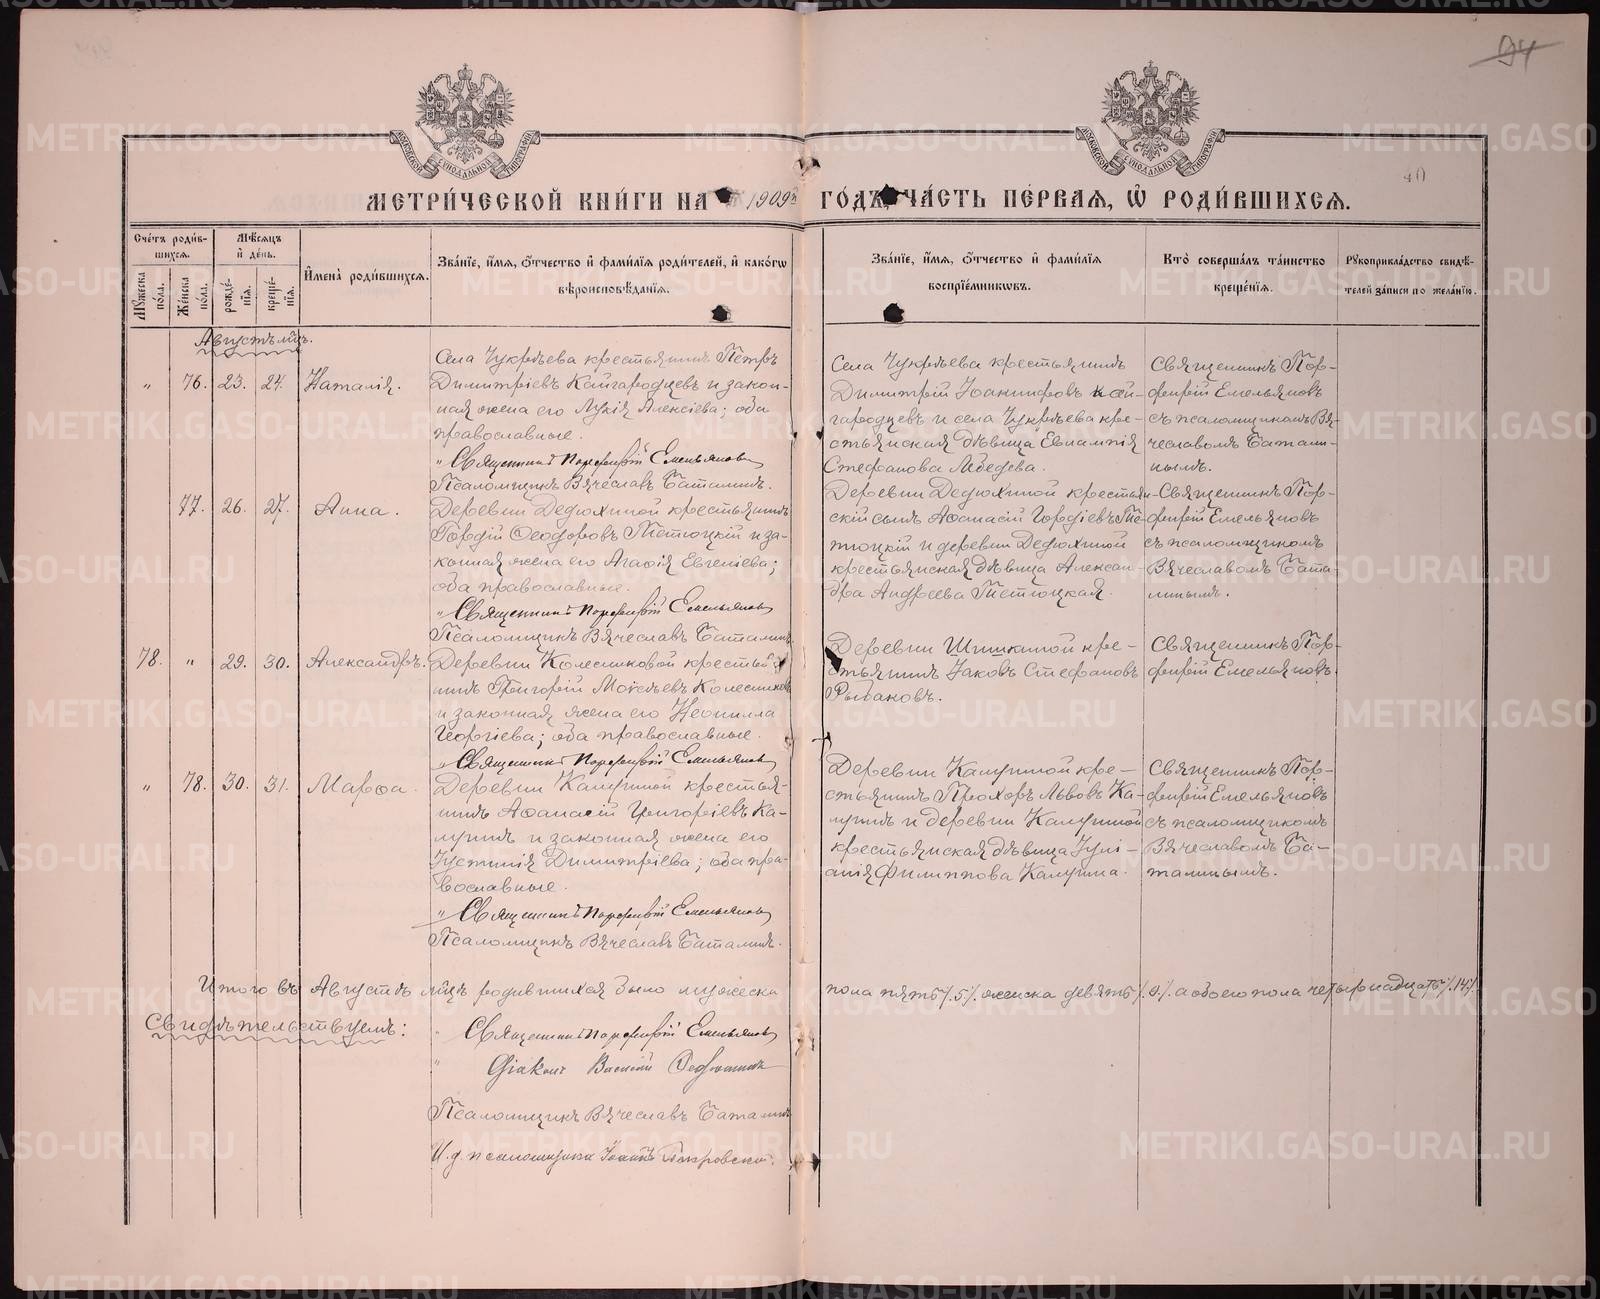 94
МОСКОВСКОЙ СѴНОДАЛЬНОЙ ТИПОГРАФІИ
МОСКОВСКОЙ СѴНОДАЛЬНОЙ ТИПОГРАФІИ
40
МЕТРИ́ЧЕСКОЙ КНИ́ГИ НА 1909й ГО́ДЪ, ЧА́СТЬ ПЕ́РВАЯ, Ѽ РОДИ́ВШИХСЯ.
Сче́тъ роди́в-
шихся.
Мѣ́сяцъ
и҆ де́нь.
И҆мена̀ роди́вшихся.
Зва́нїе, и҆́мя, ѻ҆́тчество и҆ фами́лїя роди́телей, и҆ како́гѡ
вѣроисповѣ́данїя.
Мꙋ́жеска по́ла.
Же́нска по́ла.
рожде́-нїя.
креще́-нїя.
Зва́нїе, и҆́мя, ѻ҆́тчество и҆ фами́лїя
воспрїе́мникѡвъ.
Кто̀ соверша́лъ та́инство
креще́нїя.
Рꙋкоприкла́дство свидѣ́-
телей за́писи по жела́нїю.
Августъ мц̃ъ.
" 76. 23. 24. Наталія.
Села Чукреѣва крестьянинъ Петръ
Димитріевъ Кайгародцевъ и закон-
ная жена его Лукія Алексіева; оба
православные.
" Священникъ Порфирій Емельяновъ
Псаломщикъ Вячеславъ Баталинъ.
Села Чукреѣва крестьянинъ
Димитрій Іоанниѳовъ Кай-
гародцевъ и села Чукреѣва кре-
стьянская дѣвица Евлампія
Стефанова Лебедева.
Священникъ Пор-
фирій Емельяновъ
съ псаломщикомъ Вя-
чеславомъ Батали-
нымъ.
77. 26. 27. Анна.
Деревни Дедюхиной крестьянинъ
Гордій Ѳеодоровъ Тетюцкій и за-
конная жена его Агаѳія Евгеніева;
оба православные.
" Священникъ Порфирій Емельяновъ
Псаломщикъ Вячеславъ Баталинъ.
Деревни Дедюхиной крестьян-
скій сынъ Аѳанасій Гордіевъ Те-
тюцкій и деревни Дедюхиной
крестьянская дѣвица Алексан-
дра Андреева Тетюцкая.
Священникъ Пор-
фирій Емельяновъ
съ псаломщикомъ
Вячеславомъ Бата-
линымъ.
78. " 29. 30. Александръ.
Деревни Колесниковой крестья-
нинъ Григорій Моѵсѣевъ Колесниковъ
и законная жена его Неонилла
Георгіева; оба православные.
" Священникъ Порфирій Емельяновъ
Деревни Шишкиной кре-
стьянинъ Іаковъ Стефановъ
Рыбаковъ.
Священникъ Пор-
фирій Емельяновъ.
" 78. 30. 31. Марѳа.
Деревни Калугиной крестья-
нинъ Аѳанасій Григоріевъ Ка-
лугинъ и законная жена его
Іустинія Димитріева; оба пра-
вославные.
" Священникъ Порфирій Емельяновъ
Псаломщикъ Вячеславъ Баталинъ.
Деревни Калугиной кре-
стьянинъ Прохоръ Львовъ Ка-
лугинъ и деревни Калугиной
крестьянская дѣвица Іулі-
анія Филиппова Калугина.
Священникъ Пор-
фирій Емельяновъ
съ псаломщикомъ
Вячеславомъ Ба-
талинымъ.
Итого въ Августѣ мц̃ѣ родившихся было мужеска пола пять /5/, женска девять /9/, а обоего пола четырнадцать /14/.
Свидѣтельствуемъ:
" Священникъ Порфирій Емельяновъ
" Діаконъ Василій
Псаломщикъ Вячеславъ Баталинъ
И. д. псаломщика Іоаннъ
METRIKI.GASO-URAL.RU